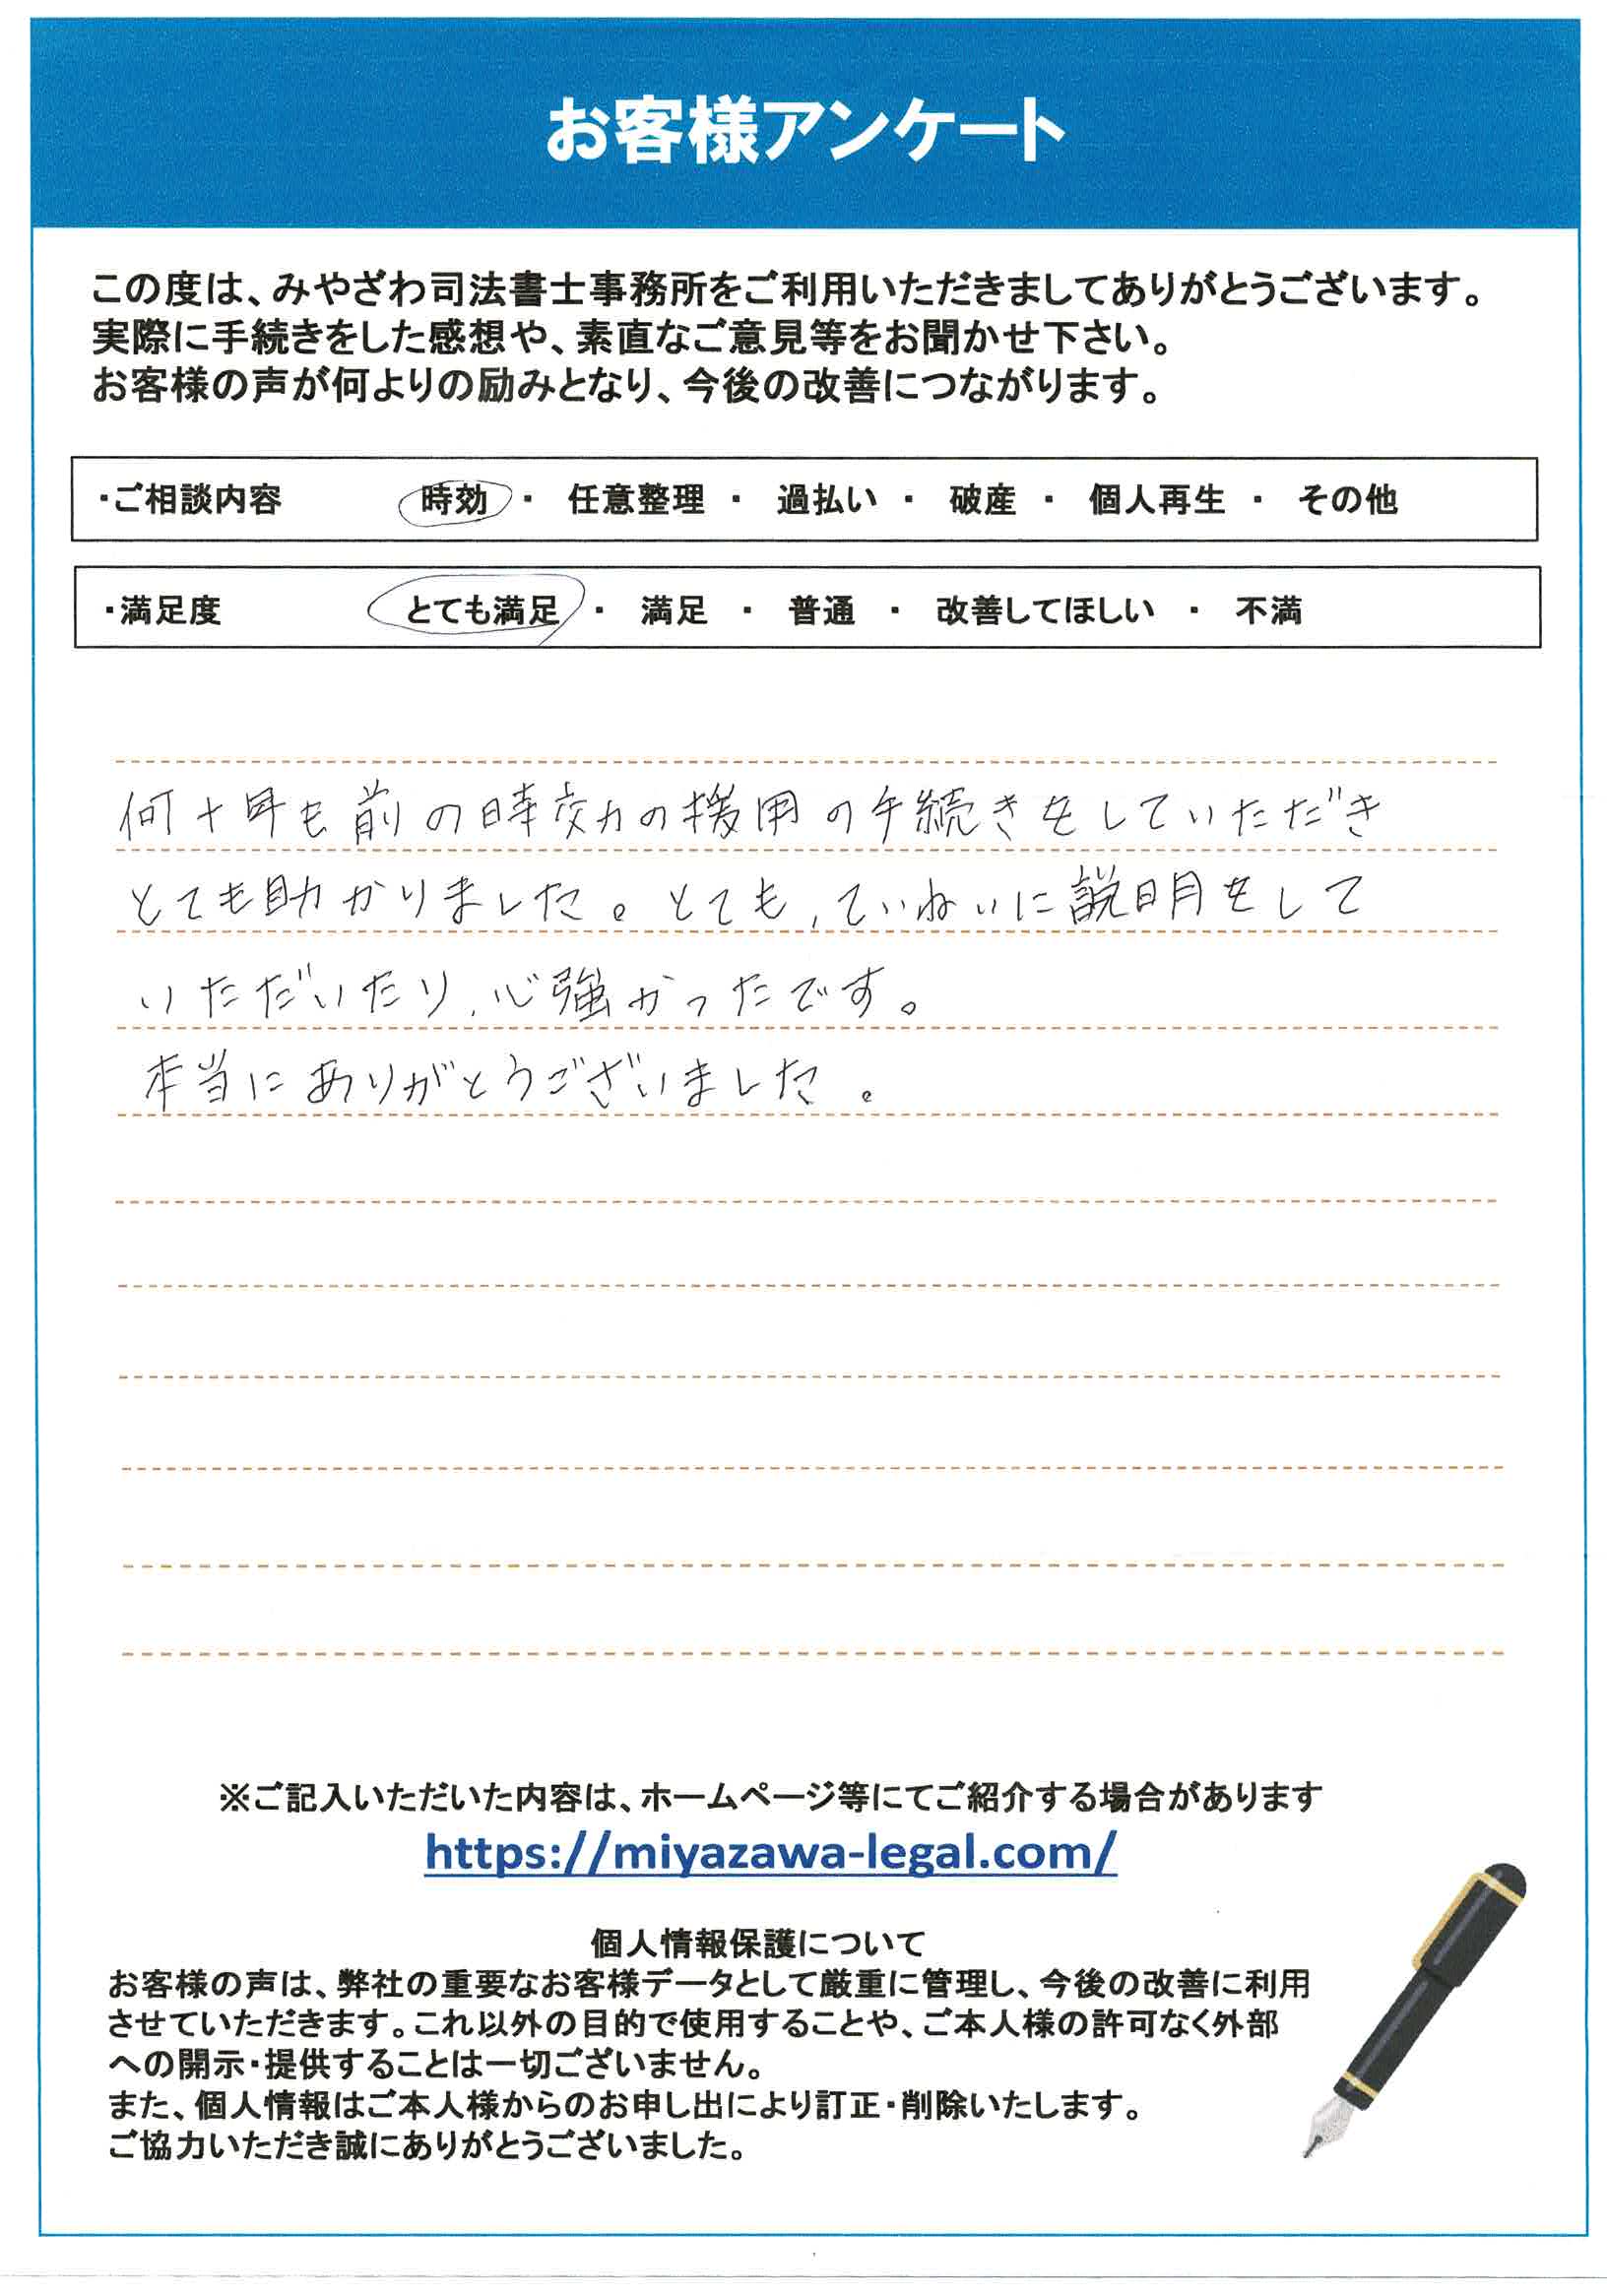 お客様アンケート
この度は、みやざわ司法書士事務所をご利用いただきましてありがとうございます。
実際に手続きをした感想や、素直なご意見等をお聞かせ下さい。
お客様の声が何よりの励みとなり、今後の改善につながります。
・ご相談内容 時効 ・ 任意整理 ・ 過払い ・ 破産 ・ 個人再生 ・ その他
・満足度 とても満足 ・ 満足 ・ 普通 ・ 改善してほしい ・ 不満
何十年も前の時効の援用の手続きをしていただき
とても助かりました。とても、ていねいに説明をして
いただいたり、心強かったです。
本当にありがとうございました。
※ご記入いただいた内容は、ホームページ等にてご紹介する場合があります
https://miyazawa-legal.com/
個人情報保護について
お客様の声は、弊社の重要なお客様データとして厳重に管理し、今後の改善に利用
させていただきます。これ以外の目的で使用することや、ご本人様の許可なく外部
への開示・提供することは一切ございません。
また、個人情報はご本人様からのお申し出により訂正・削除いたします。
ご協力いただき誠にありがとうございました。